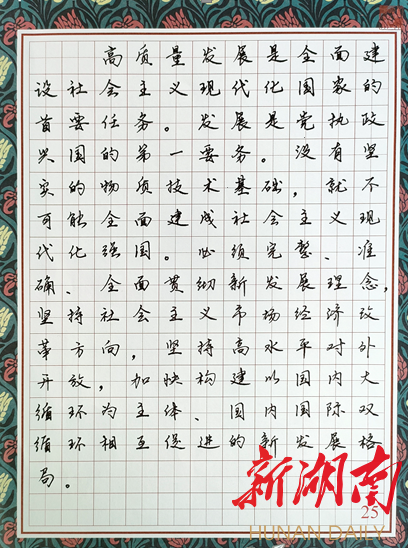 高质量发展是全面建
设社会主义现代化国家的
首要任务。发展是党执政
兴国的第一要务。没有坚
实的物质技术基础，就不
可能全面建成社会主义现
代化强国。必须完整、准
确、全面贯彻新发展理念，
坚持社会主义市场经济改
革方向，坚持高水平对外
开放，加快构建以国内大
循环为主体、国内国际双
循环相互促进的新发展格
局。
新湖南
25
HUNAN DAILY